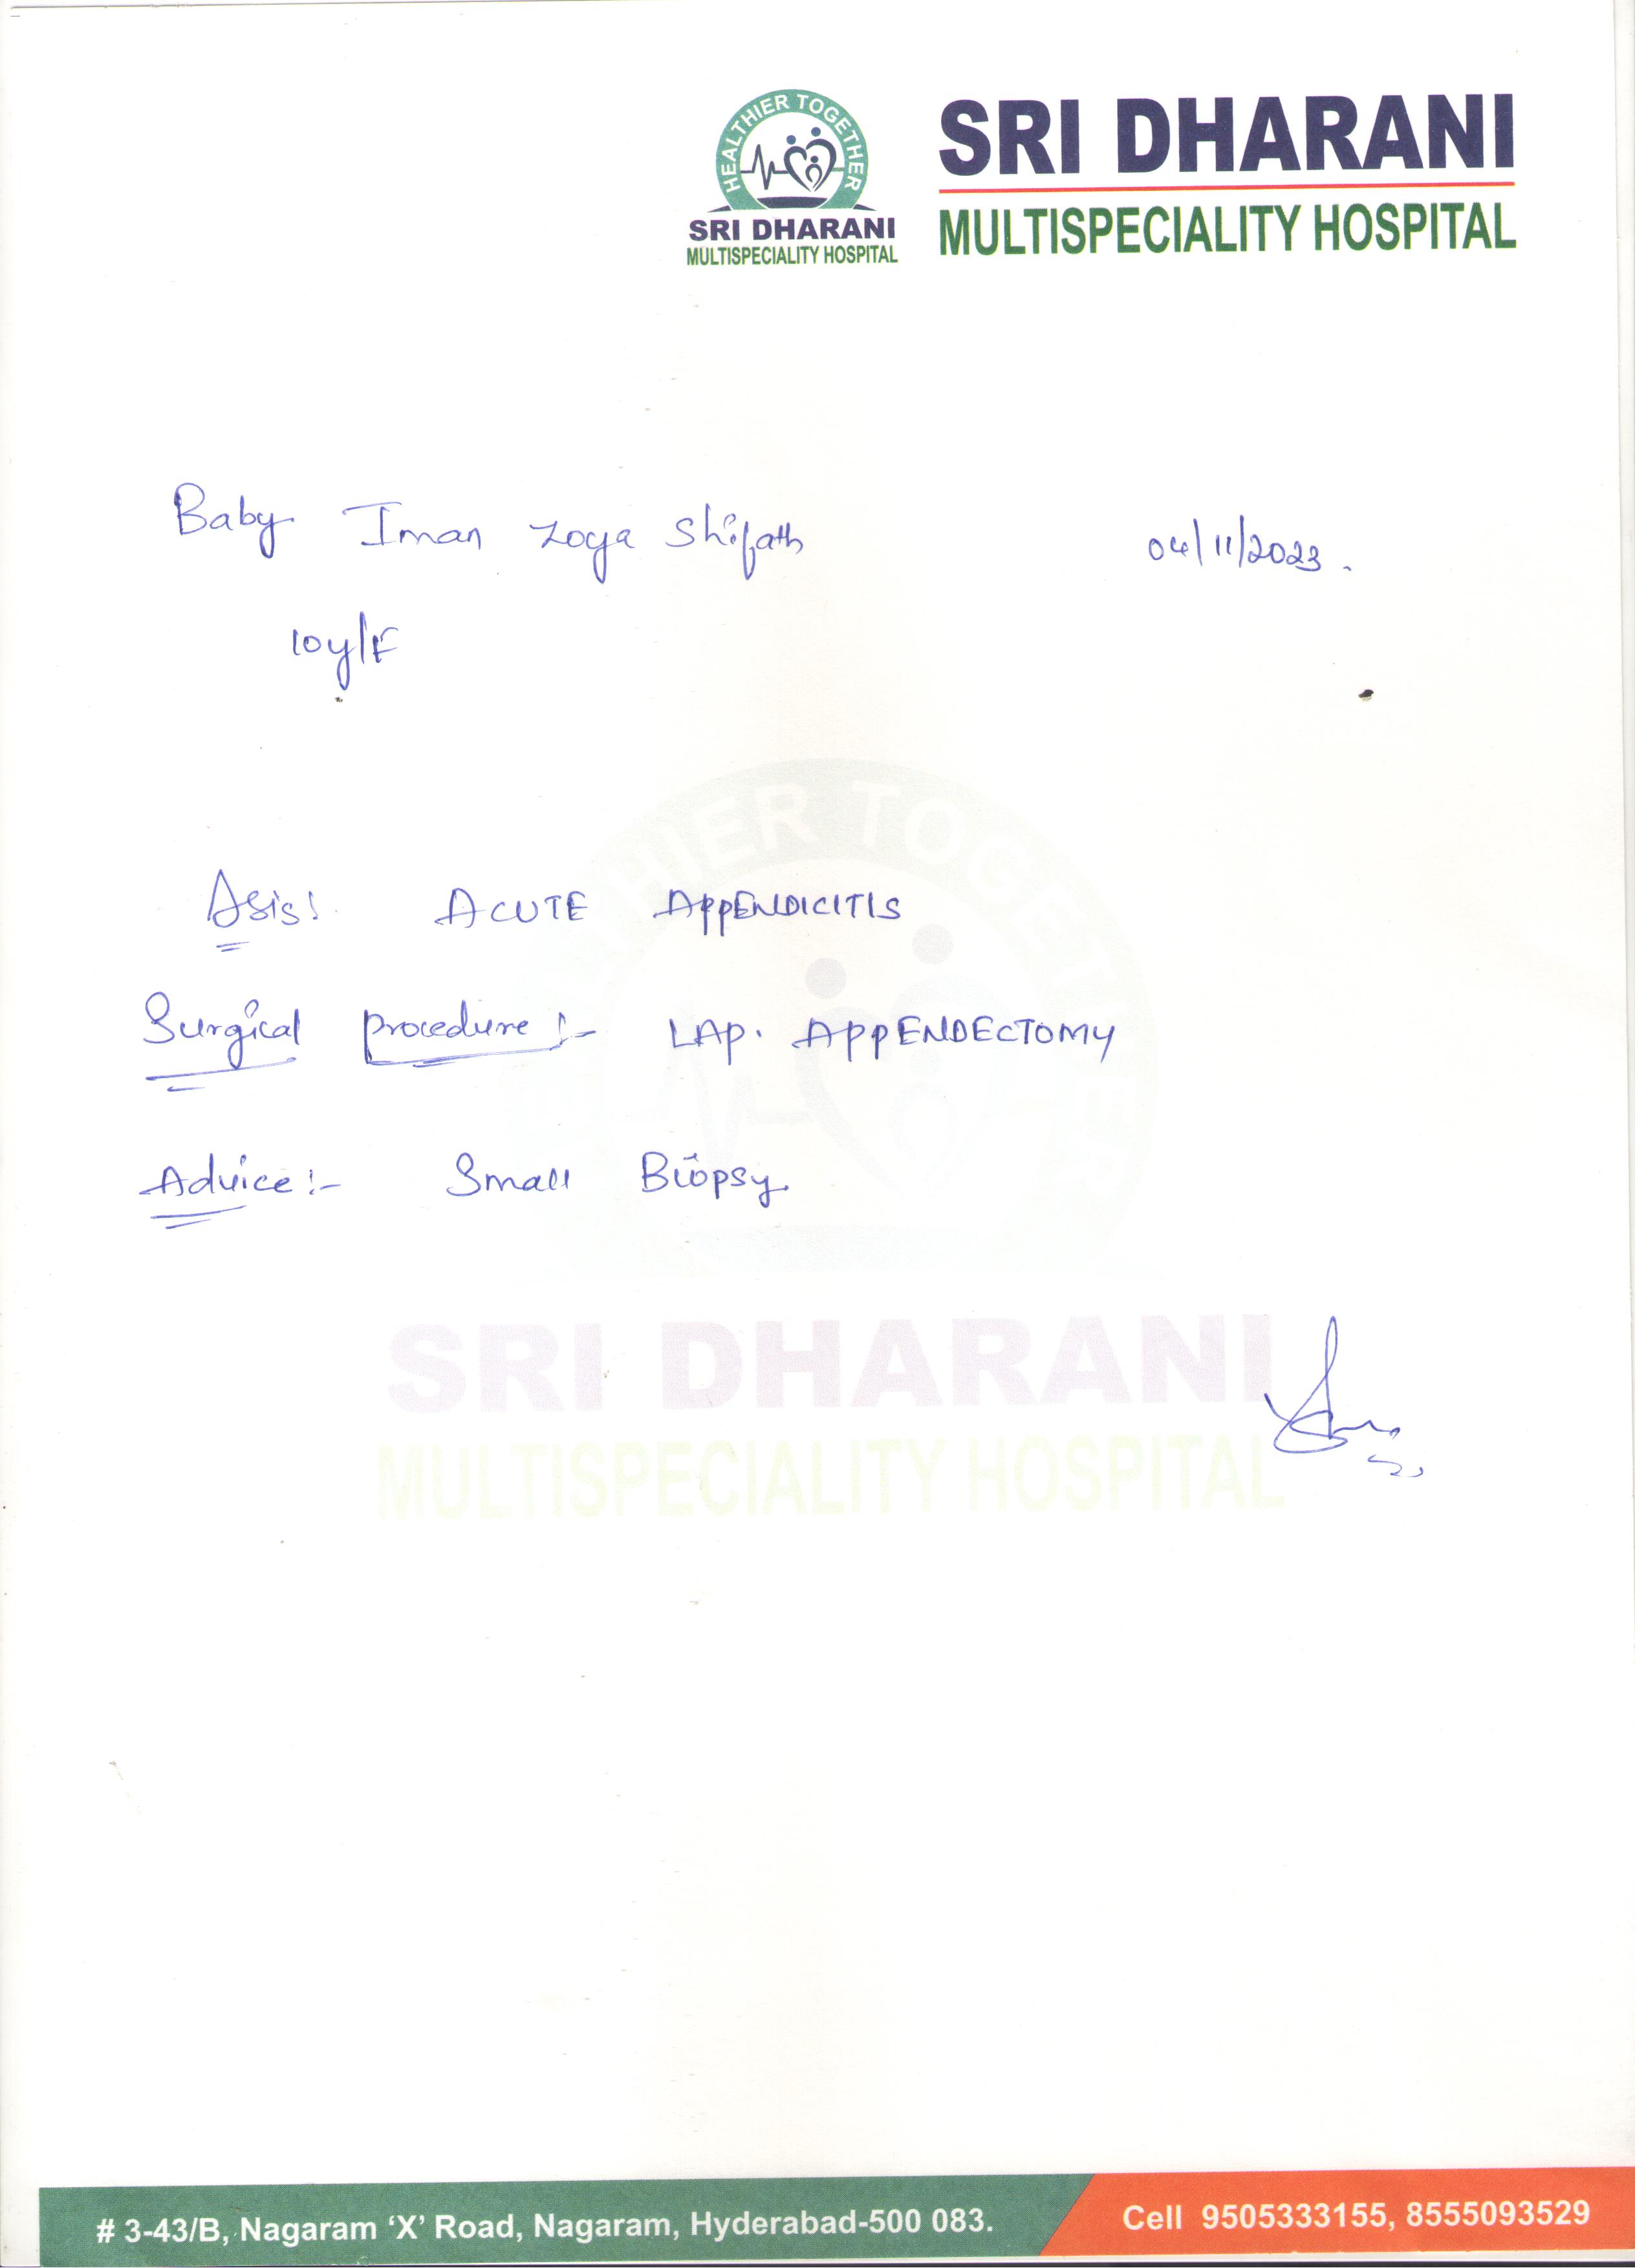 HEALTHIER TOGETHER
SRI DHARANI
MULTISPECIALITY HOSPITAL
SRI DHARANI
MULTISPECIALITY HOSPITAL
Baby Iman Zoya Shifath
04/11/2023.
10y/F
Δsis:
ACUTE APPENDICITIS
Surgical procedure:- LAP. APPENDECTOMY
Advice:- Small Biopsy
HIER TOGETHER
SRI DHARANI
MULTISPECIALITY HOSPITAL
# 3-43/B, Nagaram ‘X’ Road, Nagaram, Hyderabad-500 083.
Cell 9505333155, 8555093529